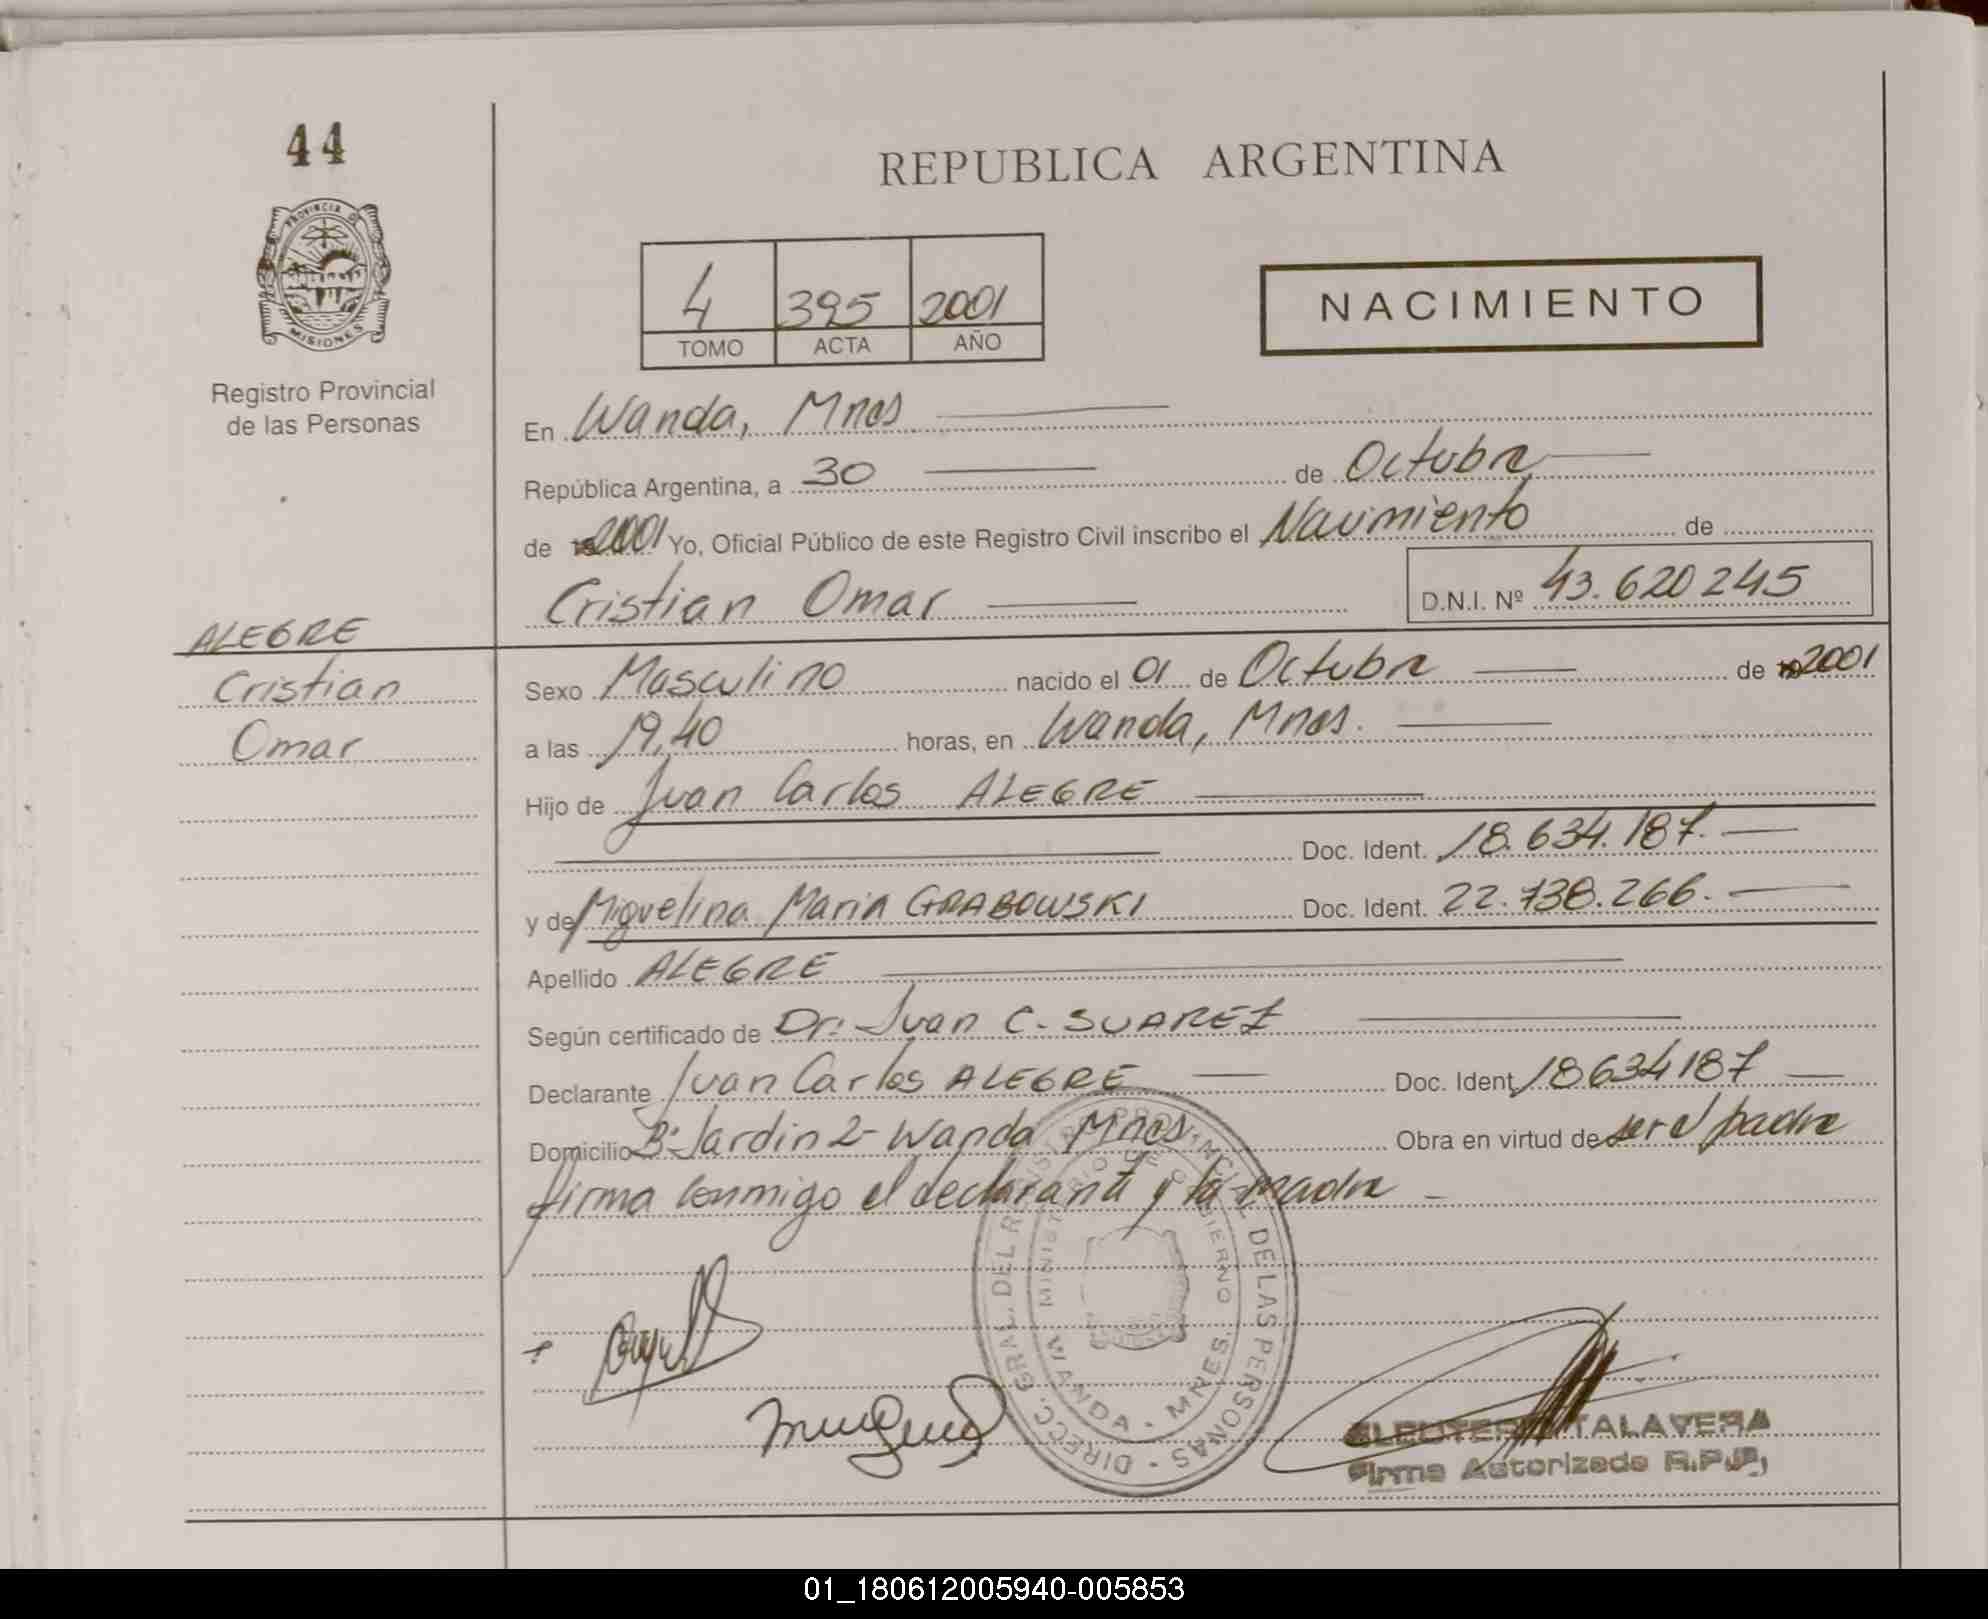 44
PROVINCIA DE
MISIONES
Registro Provincial
de las Personas
REPUBLICA ARGENTINA
4 395 2001
TOMO ACTA AÑO
NACIMIENTO
En Wanda, Mnes
República Argentina, a 30 de Octubre
de 2001 Yo, Oficial Público de este Registro Civil inscribo el Nacimiento de
Cristian Omar D.N.I. Nº 43.620245
ALEGRE
Cristian
Omar
Sexo Masculino nacido el 01 de Octubre de 2001
a las 19,40 horas, en Wanda, Mnes.
Hijo de Juan Carlos ALEGRE
Doc. Ident. 18.634.187.
y de Miguelina Maria GRABOWSKI Doc. Ident. 22.738.266.
Apellido ALEGRE
Según certificado de Dr: Juan C. SUAREZ
Declarante Juan Carlos ALEGRE Doc. Ident 18634187
Domicilio Bº Jardin 2- Wanda Mnes. Obra en virtud de ser el padre
firma conmigo el declarante y la madre
DIRECC. GRAL. DEL REGISTRO PROVINCIAL DE LAS PERSONAS
MINISTERIO DE GOBIERNO
WANDA - MNES.
ELEUTERIO TALAVERA
Firma Autorizada R.P.P.
01_180612005940-005853